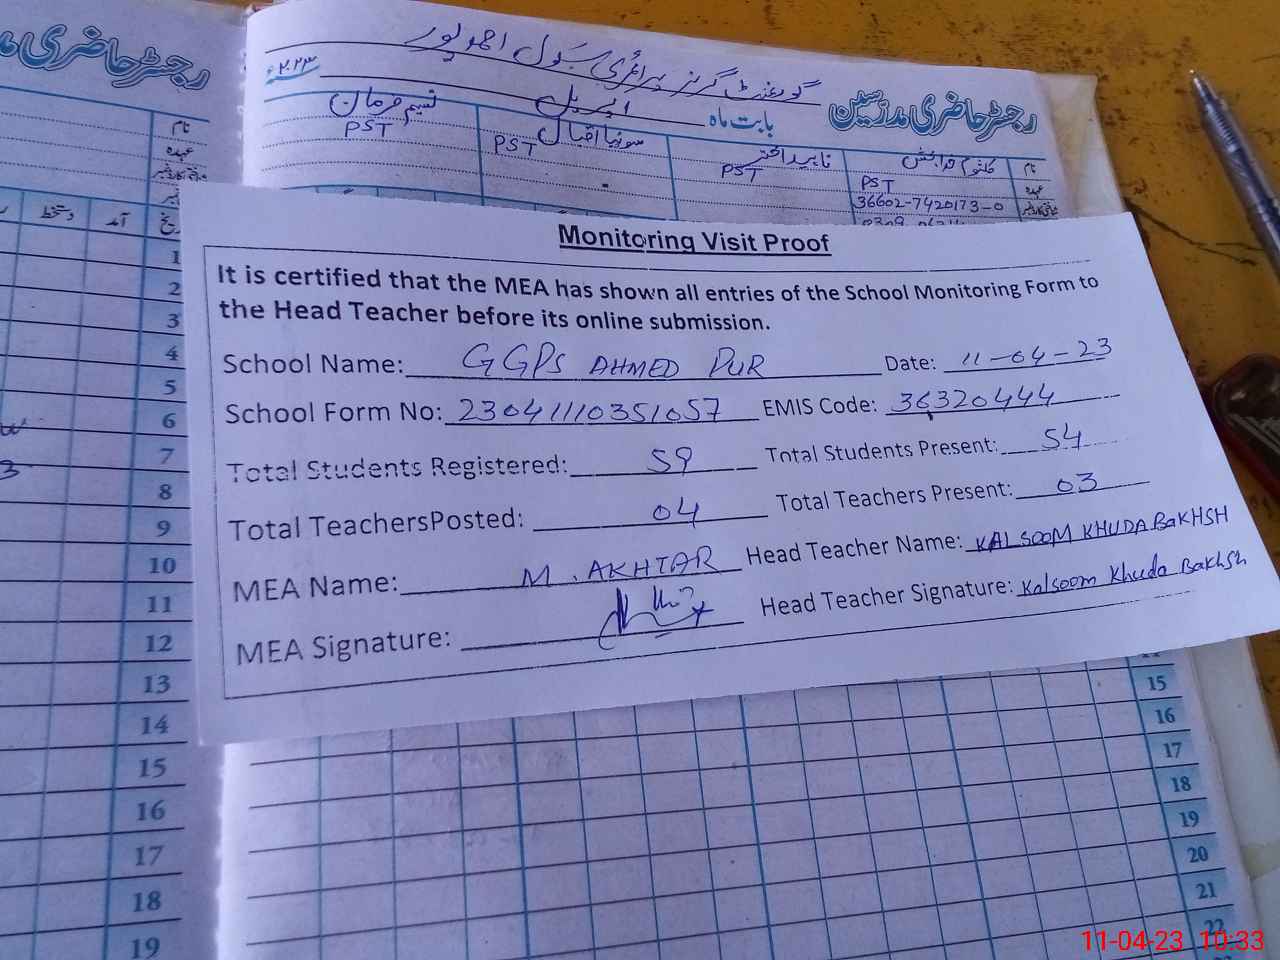 رجسٹر حاضری مدرسین
گورنمنٹ گرلز پرائمری سکول احمد پور
رجسٹر حاضری مدرسین
بابت ماہ اپریل
۲۰۲۳ء
نام
کلثوم خدا بخش
ناہید اختر
سونیا اقبال
نسیم فرمان
عہدہ
PST
PST
PST
PST
36602-7420173-0
نام
عہدہ
آمد
دستخط
Monitoring Visit Proof
It is certified that the MEA has shown all entries of the School Monitoring Form to
the Head Teacher before its online submission.
School Name: GGPS AHMED PUR Date: 11-04-23
School Form No: 23041110351057 EMIS Code: 36320444
Total Students Registered: 59 Total Students Present: 54
Total TeachersPosted: 04 Total Teachers Present: 03
MEA Name: M. AKHTAR Head Teacher Name: KALSOOM KHUDA BAKHSH
MEA Signature: Head Teacher Signature: Kalsoom Khuda Bakhsh
1
2
3
4
5
6
7
8
9
10
11
12
13
14
15
16
17
18
19
15
16
17
18
19
20
21
22
11-04-23 10:33